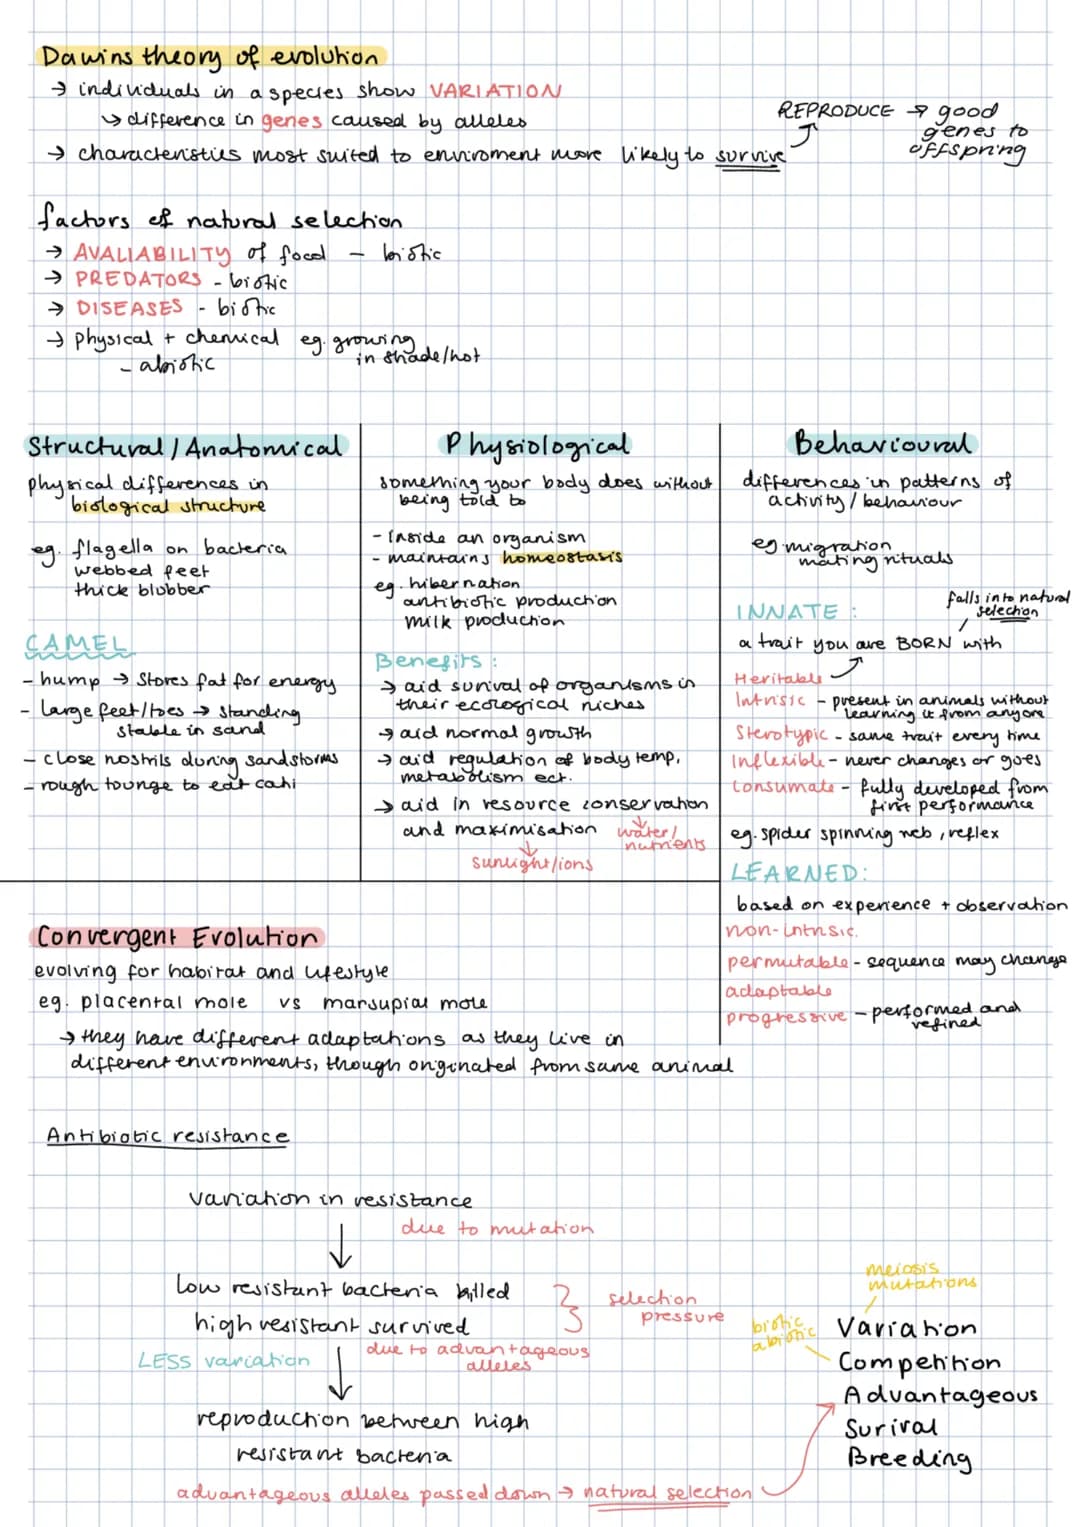 Dawins theory of evolution
→ individuals in a species show VARIATION
↳ difference in genes caused by alleles
→ characteristics most suited to enviroment more likely to survive
REPRODUCE → good
genes to
offspring
factors of natural selection
→ AVALIABILITY of food - biotic
→ PREDATORS - biotic
→ DISEASES - biotic
→ physical + chemical eg. growing
in shade/hot
- abiotic
Structural / Anatomical
physical differences in
biological structure
eg. flagella on bacteria
webbed feet
thick blubber
CAMEL
- hump → stores fat for energy
- large feet/toes → standing
stable in sand
- close nostrils during sandstorms
- rough tounge to eat cahi
Physiological
something your body does without
being told to
- inside an organism
- maintains homeostasis
eg. hibernation
antibiotic production
milk production
Benefits :
→ aid surival of organisms in
their ecological niches
→ aid normal growth
→ aid regulation of body temp,
metabolism ect.
→ aid in resource conservation
and maximisation
water/
nutrients
sunlight/ions
Behavioural
differences in patterns of
activity / behaviour
eg migration
mating rituals
INNATE :
falls into natural
selection
a trait you are BORN with
Heritable
Intrisic - present in animals without
learning it from anyone
Sterotypic - same trait every time
Inflexible - never changes or goes
Consumate - fully developed from
first performance
eg. spider spinning web, reflex
LEARNED:
based on experience + observation
non-intrisic.
permutable - sequence may change
adaptable
progressive - performed and
refined
Convergent Evolution
evolving for habitat and lifestyle
eg. placental mole vs marsupial mole
→ they have different adaptations as they live in
different environments, though originated from same animal
Antibiotic resistance
variation in resistance
due to mutation
low resistant bacteria killed
high resistant survived
selection
pressure
LESS variation
due to advantageous
alleles
reproduction between high
resistant bacteria
advantageous alleles passed down → natural selection
meiosis
mutations
biotic
abiotic
Variation
Competition
Advantageous
Surival
Breeding